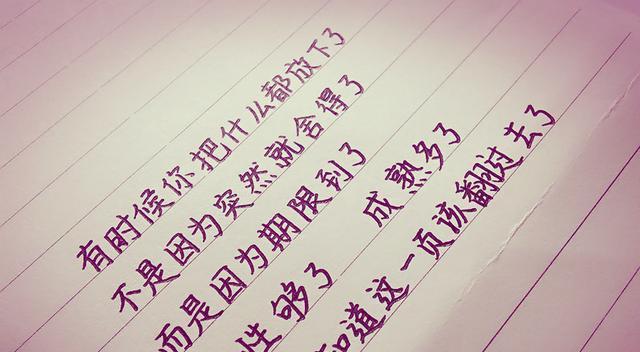 有时候你把什么都放下了
不是因为突然就舍得了
而是因为期限到了
性够了 成熟多了
知道这一页该翻过去了